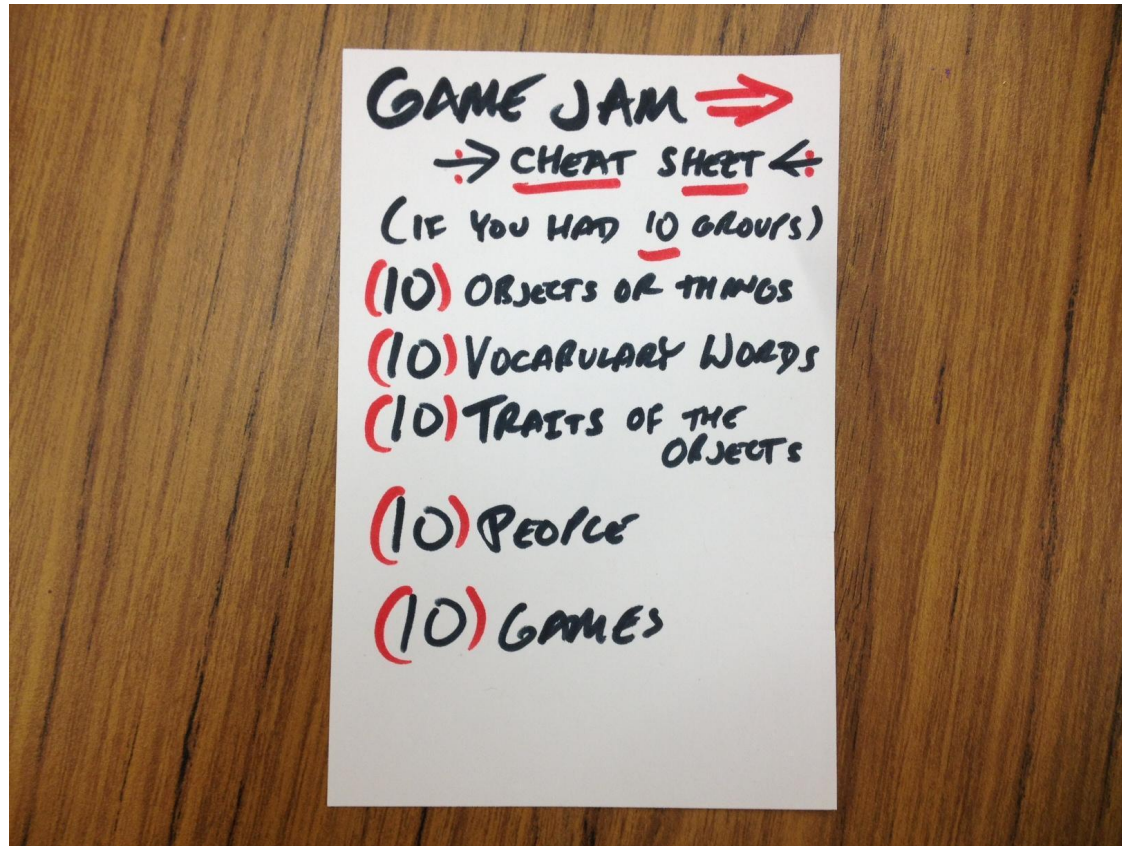 GAME JAM
CHEAT SHEET
(IF YOU HAD 10 GROUPS)
(10) OBJECTS OR THINGS
(10) VOCABULARY WORDS
(10) TRAITS OF THE
OBJECTS
(10) PEOPLE
(10) GAMES